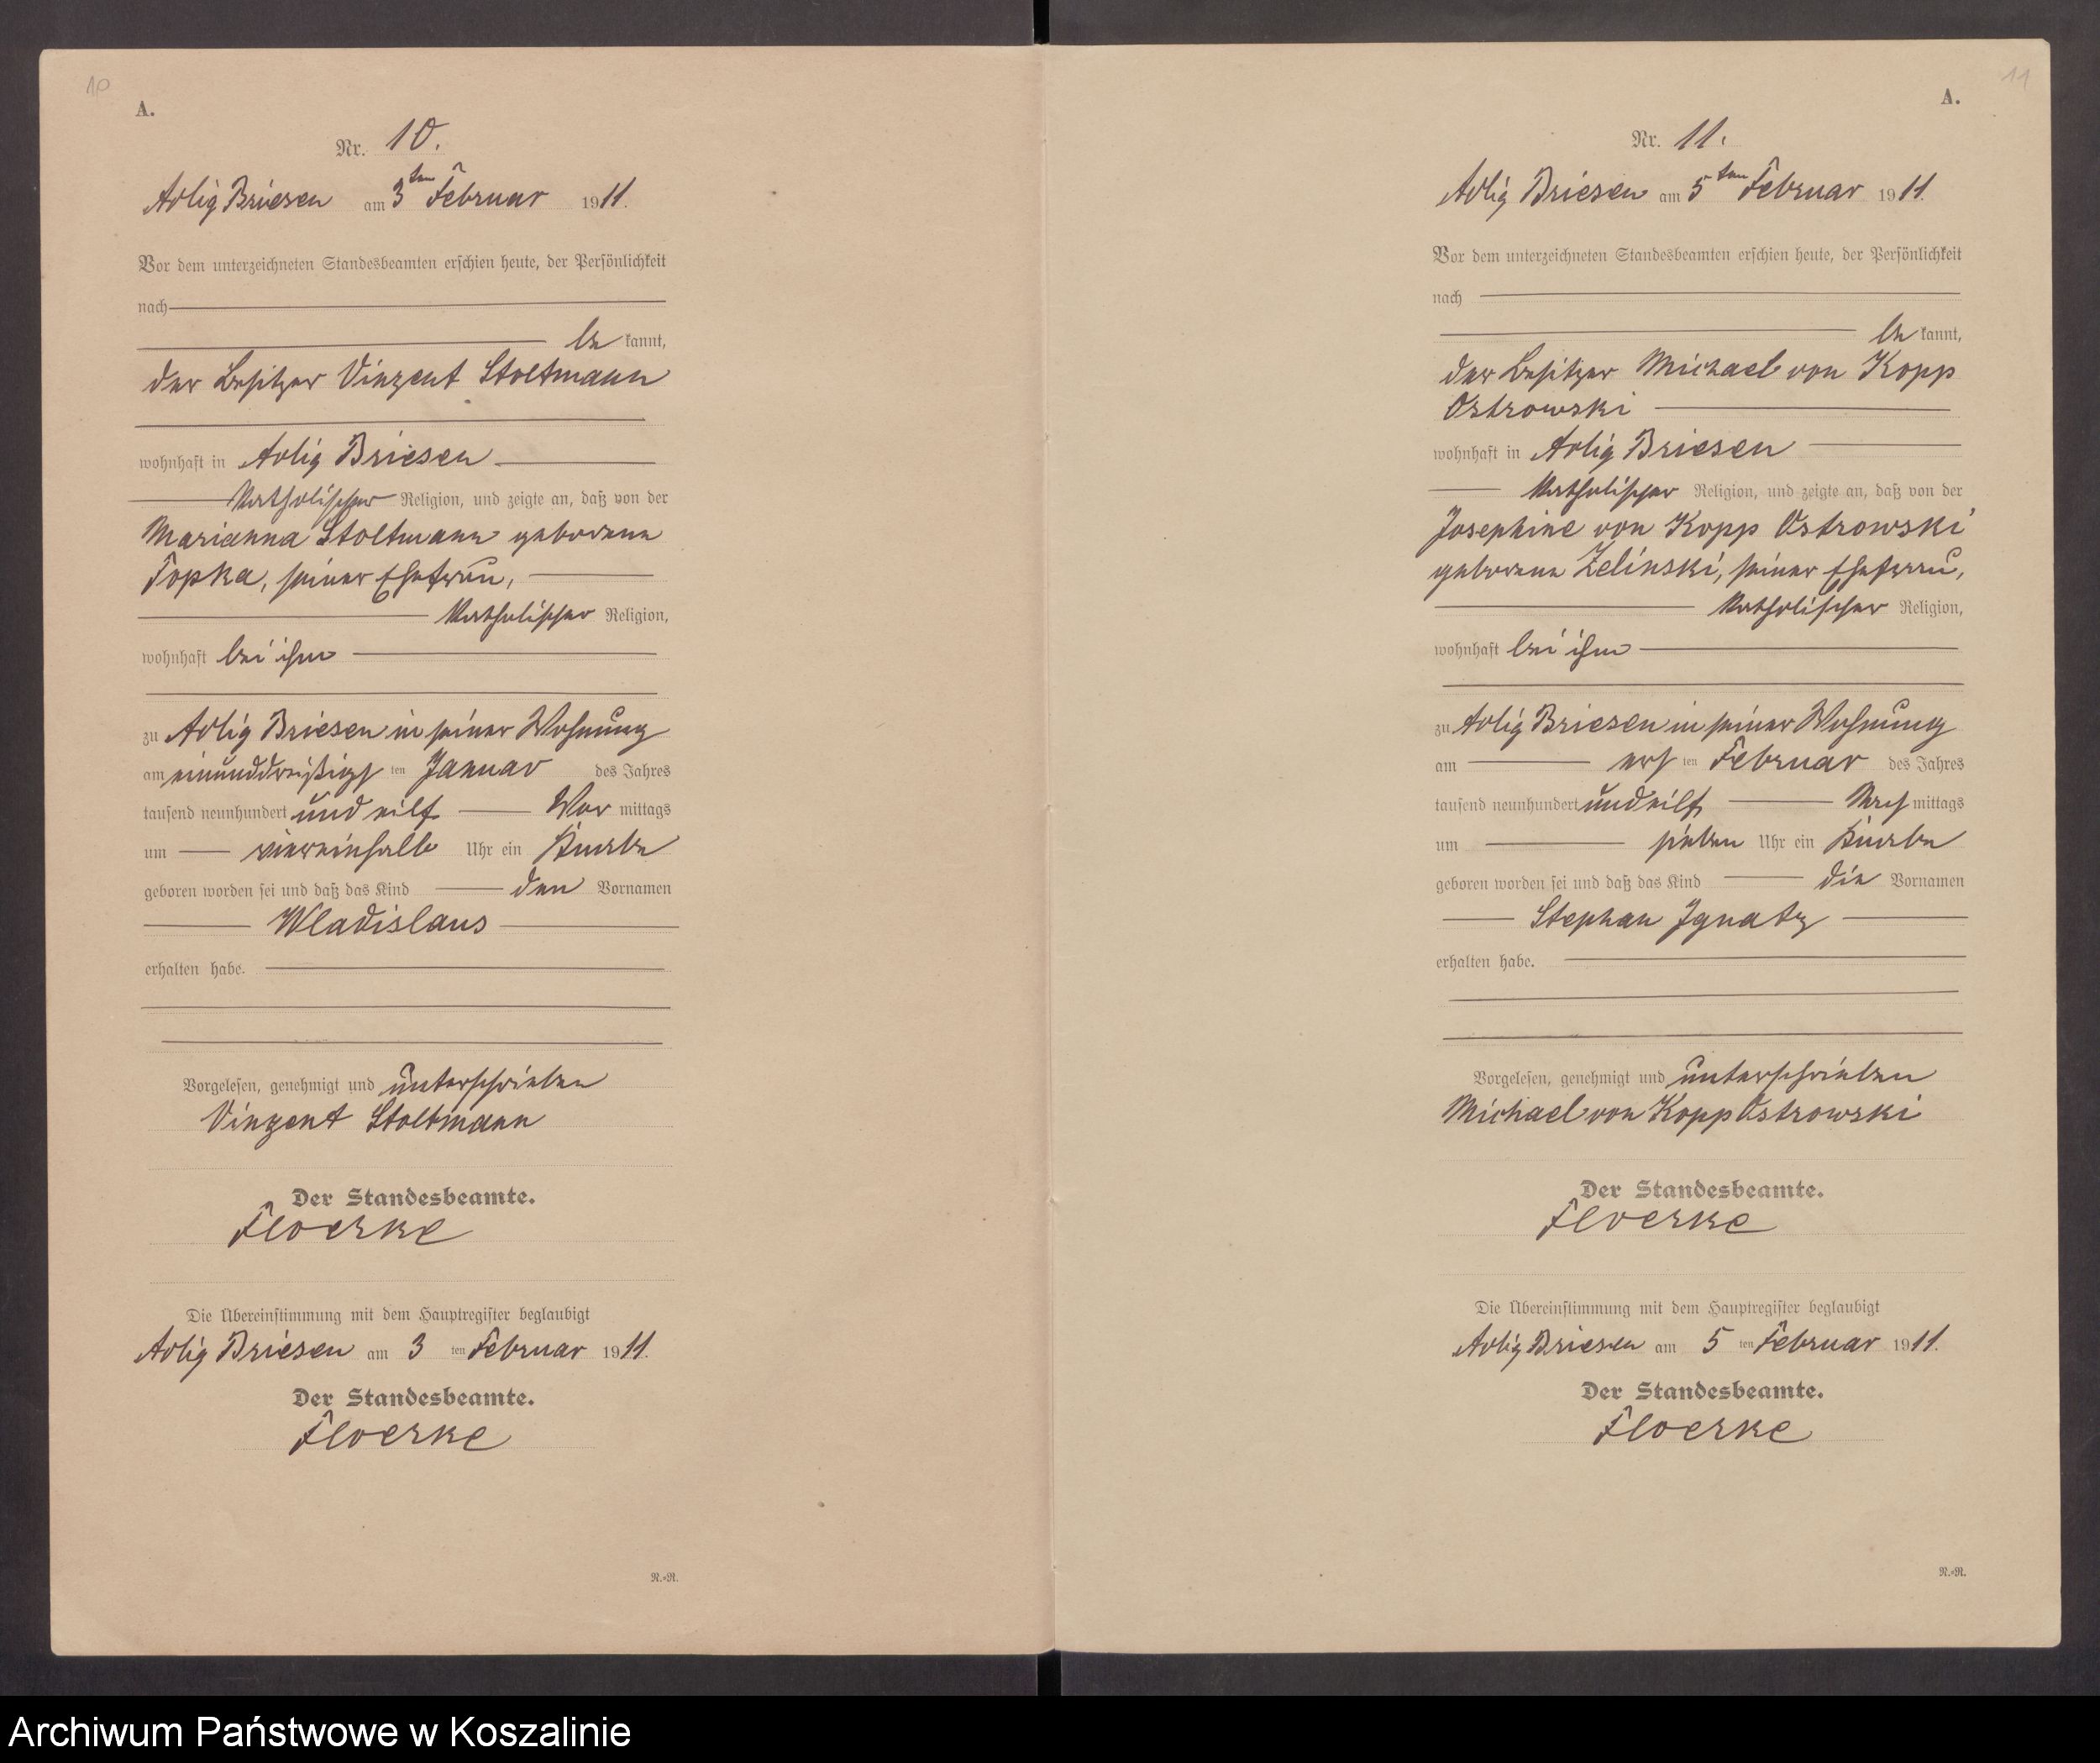 10
A.
Nr. 10.
Adlig Briesen am 3ten Februar 1911.
Vor dem unterzeichneten Standesbeamten erschien heute, der Persönlichkeit
nach
be kannt,
der Besitzer Vinzent Stoltmann
wohnhaft in Adlig Briesen
katholischer Religion, und zeigte an, daß von der
Marianna Stoltmann geborene
Topka, seiner Ehefrau,
katholischer Religion,
wohnhaft bei ihm
zu Adlig Briesen in seiner Wohnung
am einunddreißigsten Januar des Jahres
tausend neunhundert und eilf Vor mittags
um viereinhalb Uhr ein Knabe
geboren worden sei und daß das Kind den Vornamen
Wladislaus
erhalten habe.
Vorgelesen, genehmigt und unterschrieben
Vinzent Stoltmann
Der Standesbeamte.
Floerke
Die Übereinstimmung mit dem Hauptregister beglaubigt
Adlig Briesen am 3 ten Februar 1911.
Der Standesbeamte.
Floerke
R.=R.
11
A.
Nr. 11.
Adlig Briesen am 5ten Februar 1911.
Vor dem unterzeichneten Standesbeamten erschien heute, der Persönlichkeit
nach
be kannt,
der Besitzer Michael von Kopp
Ostrowski
wohnhaft in Adlig Briesen
katholischer Religion, und zeigte an, daß von der
Josephine von Kopp Ostrowski
geborene Zelinski, seiner Ehefrau,
katholischer Religion,
wohnhaft bei ihm
zu Adlig Briesen in seiner Wohnung
am ersten Februar des Jahres
tausend neunhundert und eilf Nach mittags
um sieben Uhr ein Knabe
geboren worden sei und daß das Kind die Vornamen
Stephan Ignatz
erhalten habe.
Vorgelesen, genehmigt und unterschrieben
Michael von Kopp Ostrowski
Der Standesbeamte.
Floerke
Die Übereinstimmung mit dem Hauptregister beglaubigt
Adlig Briesen am 5 ten Februar 1911.
Der Standesbeamte.
Floerke
R.=R.
Archiwum Państwowe w Koszalinie